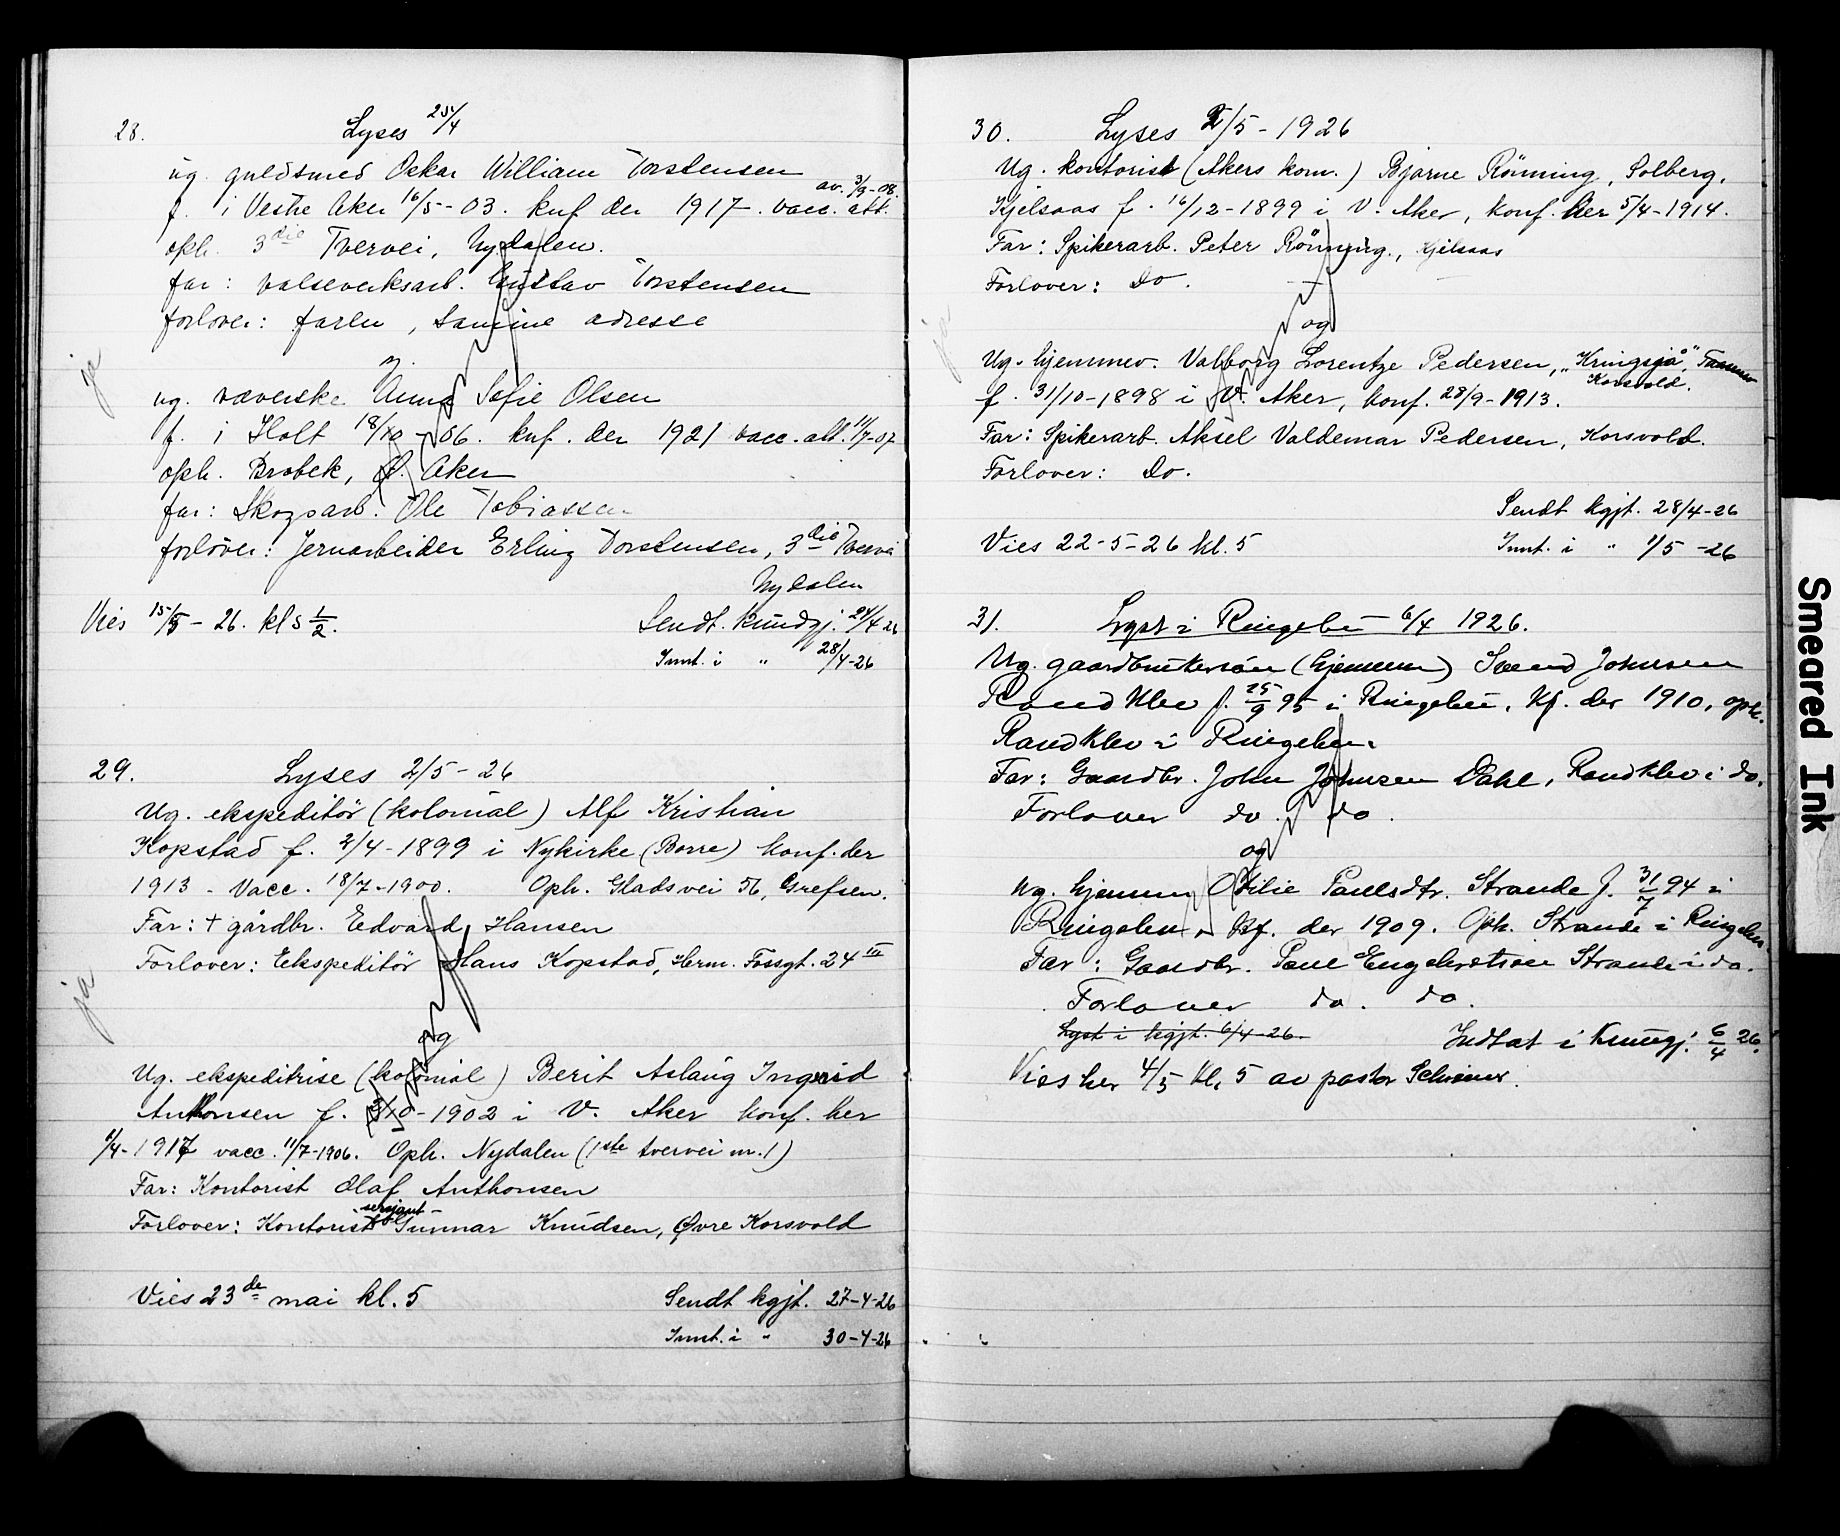 28. Lyses 25/4
ug. guldsmed Oskar William Torstensen
f. i Vestre Aker 16/5-03. knf der 1917. vacc. att. av. 3/9-08
oph. 3die Tvervei, Nydalen.
far: valseverksarb. Gustav Torstensen
forlover: faren, samme adresse
ja
og
ug. væverske Anna Sofie Olsen
f. i Holt 18/10-06. knf. der 1921 vacc. att. 11/7-07
oph. Brobek, Ø. Aker
far: Skogsarb. Ole Tobiassen
forlover: Jernarbeider Erling Torstensen, 3die Tvervei
Nydalen
Vies 15/5-26. kl 5 1/2.
Sendt. kundgj. 24/4 26
Innt. i " 28/4-26
29. Lyses 2/5-26
Ug. ekspeditör (kolonial) Alf Kristian
Kopstad f. 2/4-1899 i Nykirke (Borre) konf. der
1913 - Vacc. 18/7-1900. Oph. Gladsvei 56, Grefsen.
Far: + gårdbr. Edvard Hansen
Forlover: Ekspeditör Hans Kopstad, Herm. Fossgt. 24 III
ja
og
Ug. ekspeditrise (kolonial) Berit Aslaug Ingrid
Anthonsen f. 2/10-1902 i V. Aker konf. her
1/4-1917 vacc. 11/7-1906. Oph. Nydalen (1ste tvervei nr. 1)
Far: Kontorist Olaf Anthonsen
Forlover: Kontorist sersjant Gunnar Knudsen, Øvre Korsvold
Vies 23de mai kl. 5
Sendt kgjt. 27-4-26
Innt. i " 30-4-26
30. Lyses 2/5-1926
Ug. kontorist (Akers kom.) Bjarne Rönning, Solberg,
Kjelsaas f. 16/12-1899 i V. Aker, konf. her 5/4-1914.
Far: Spikerarb. Peter Rönning, Kjelsaas
Forlover: Do.
ja
og
Ug. hjemmev. Valborg Lorentze Pedersen, "Kringsjå",
Korsvold.
f. 31/10-1898 i V. Aker, konf. 28/9-1913.
Far: Spikerarb. Aksel Valdemar Pedersen, Korsvold.
Forlover: Do.
Sendt kgjt. 28/4-26
Vies 22-5-26 kl. 5
Innt. i " 1/5-26
31. Lyst i Ringebu 6/4 1926.
Ug. gaardbrukersön (hjemme) Svend Johnsen
Randklev f. 25/9 95 i Ringebu. Kf. der 1910, oph.
Randklev i Ringebu.
Far: Gaardbr. John Johnsen Dahl, Randklev i do.
Forlover do. do.
og
ug. hjemme Otilie Paulsdtr. Strande f. 31/7 94 i
Ringebu. Kf. der 1909. Oph. Strande i Ringebu.
Far: Gaardbr. Paul Engebretsen Strande i do.
Forlover do. do.
Lyst i kgjt. 6/4-26.
Indtat i Kungj. 6/4 26.
Vies her 4/5 kl. 5 av pastor Schreiner.
Smeared Ink